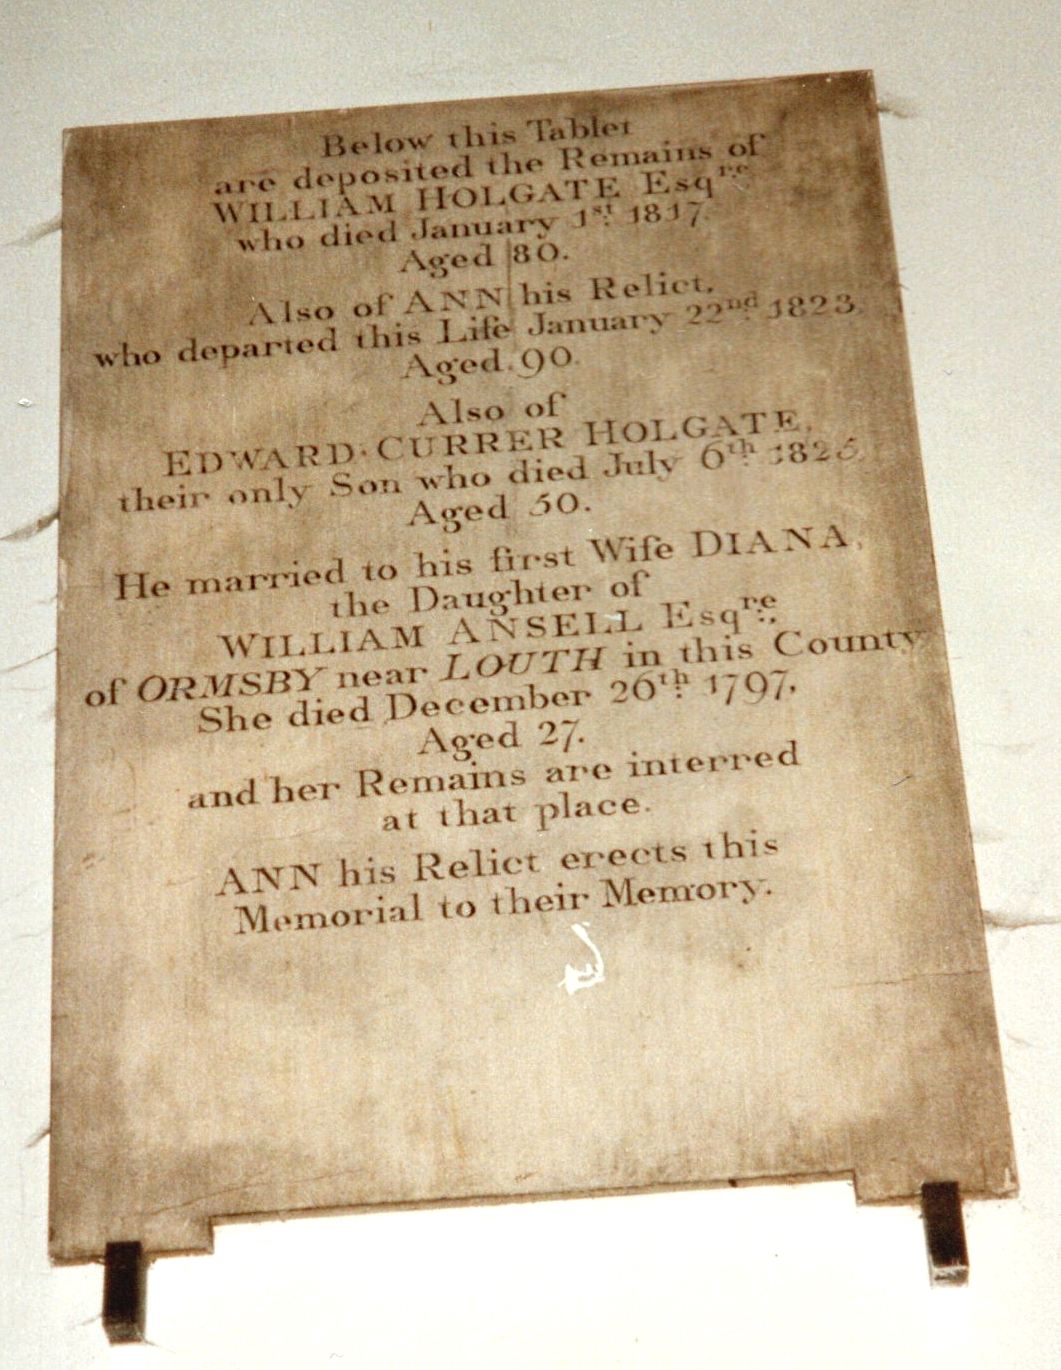 Below this Tablet
are deposited the Remains of
WILLIAM HOLGATE Esqre.
who died January 1st. 1817.
Aged 80.
Also of ANN his Relict,
who departed this Life January 22nd. 1823,
Aged 90.
Also of
EDWARD CURRER HOLGATE,
their only Son who died July 6th. 1825
Aged 50.
He married to his first Wife DIANA,
the Daughter of
WILLIAM ANSELL Esqre.
of ORMSBY near LOUTH in this County
She died December 26th. 1797,
Aged 27.
and her Remains are interred
at that place.
ANN his Relict erects this
Memorial to their Memory.